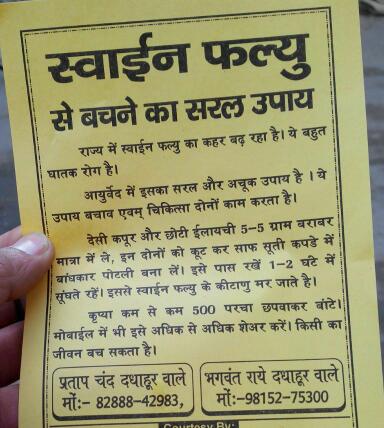 स्वाईन फल्यु
से बचने का सरल उपाय
राज्य में स्वाईन फल्यु का कहर बढ़ रहा है। ये बहुत
घातक रोग है।
आयुर्वेद में इसका सरल और अचूक उपाय है । ये
उपाय बचाव एवम् चिकित्सा दोनों काम करता है।
देसी कपूर और छोटी ईलायची 5-5 ग्राम बराबर
मात्रा में ले, इन दोनों को कूट कर साफ सूती कपडे में
बांधकार पोटली बना लें। इसे पास रखें 1-2 घंटे में
सूंघते रहें। इससे स्वाईन फल्यु के कीटाणु मर जाते है।
कृप्या कम से कम 500 परचा छपवाकर बांटे।
मोबाईल में भी इसे अधिक से अधिक शेअर करें। किसी का
जीवन बच सकता है।
प्रताप चंद दधाहूर वाले
मों:- 82888-42983,
भगवंत राये दधाहूर वाले
मों:-98152-75300
Courtesy By: